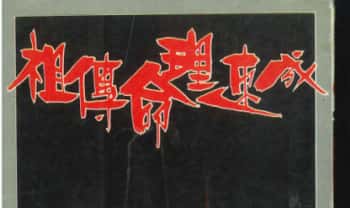 祖傳命理速成